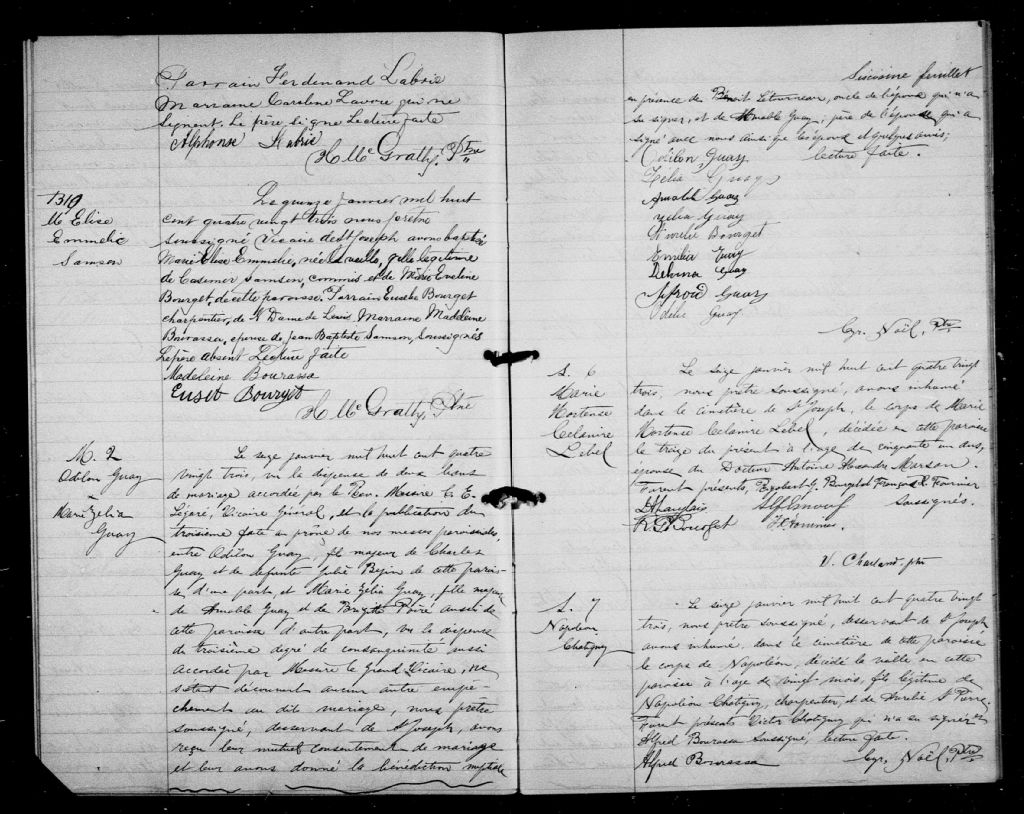 Parrain Ferdinand Labrie
Marraine Caroline Lavoie qui ne
signent. Le père signe Lecture faite
Alphonse Labrie
H. McGratty, Ptre
1319
M Elise
Emmelie
Samson
Le quinze janvier mil huit
cent quatre vingt trois nous prêtre
soussigné Vicaire de St Joseph avons baptisé
Marie Elise Emmelie, née la veille, fille légitime
de Casimer Samson, commis et de Marie Eveline
Bourget, de cette paroisse. Parrain Eusebe Bourget
charpentier, de N. Dame de Levis Marraine Madeleine
Bourassa, épouse de Jean Baptiste Samson, Soussignés
Le père absent Lecture faite
Madeleine Bourassa
Euseb Bourget
H. McGratty, Ptre
M. 2
Odilon Guay
&
Marie Zélia
Guay
Le seize janvier mil huit cent quatre
vingt trois, vu la dispense de deux bans
de mariage accordée par le Rev. Messire C. E.
Légaré, Vicaire Général, et la publication du
troisième faite au prône de nos messes paroissiales,
entre Odilon Guay, fils majeur de Charles
Guay et de defunte Julie Begin de cette parois-
se, d'une part, et Marie Zélia Guay, fille majeure
de Amable Guay et de Brigitte Poiré aussi de
cette paroisse d'autre part, vu la dispense
du troisième degré de consanguinité aussi
accordée par Messire le Grand Vicaire, ne
s'étant découvert aucun autre empê-
chement au dit mariage, nous, prêtre
soussigné, desservant de St Joseph, avons
reçu leur mutuel consentement de mariage
et leur avons donné la bénédiction nuptiale
Sixième feuillet
en présence de Benoit Letourneau, oncle de l'époux qui n'a
su signer, et de Amable Guay, père de l'épouse qui a
signé avec nous ainsi que les époux et quelques amis;
lecture faite.
Odilon Guay
Zélia Guay
Amable Guay
Zélia Guay
Bourget
Emilia Guay
Delvina Guay
Guay
Odile Guay
Cyr. Noël, Ptre
S. 6
Marie
Hortense
Eclanire
Lebel
Le seize janvier mil huit cent quatre vingt
trois, nous prêtre soussigné, avons inhumé
dans le cimetière de St Joseph, le corps de Marie
Hortense Eclanire Lebel, décédée en cette paroisse
le treize du présent à l'age de cinquante un ans,
épouse du Docteur Antoine Alexandre Marsan.
Furent présents, G. Bourget François X Fournier
Soussignés.
Bourget
V. Charland ptre
S. 7
Napoléon
Chatigny
Le seize janvier mil huit cent quatre vingt
trois, nous prêtre soussigné, desservant de St Joseph
avons inhumé, dans le cimetière de cette paroisse
le corps de Napoléon, décédé la veille en cette
paroisse à l'age de vingt mois, fils légitime de
Napoléon Chatigny, charpentier, et de Aurélie St Pierre.
Furent présents Victor Chatigny qui n'a su signer et
Alfred Bourassa Soussigné, lecture faite.
Alfred Bourassa
Cyr. Noël, Ptre